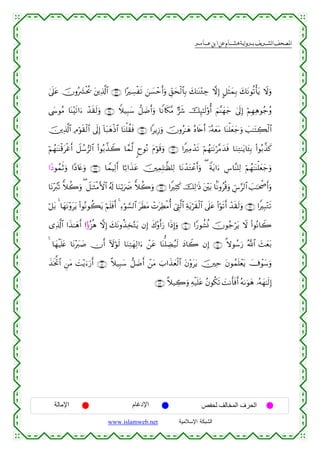 المصحف الشريف برواية هشام عن ابن عامر
وَلَا يَأْتُونَكَ بِمَثَلٍ إِلَّا جِئْنَٰكَ بِٱلْحَقِّ وَأَحْسَنَ تَفْسِيرًا ۝ ٱلَّذِينَ يُحْشَرُونَ عَلَىٰ
وُجُوهِهِمْ إِلَىٰ جَهَنَّمَ أُوْلَٰٓئِكَ شَرٌّ مَّكَانًا وَأَضَلُّ سَبِيلًا ۝ وَلَقَدْ ءَاتَيْنَا مُوسَى
ٱلْكِتَٰبَ وَجَعَلْنَا مَعَهُۥٓ أَخَاهُ هَٰرُونَ وَزِيرًا ۝ فَقُلْنَا ٱذْهَبَآ إِلَى ٱلْقَوْمِ ٱلَّذِينَ
كَذَّبُواْ بِـَٔايَٰتِنَا فَدَمَّرْنَٰهُمْ تَدْمِيرًا ۝ وَقَوْمَ نُوحٍ لَّمَّا كَذَّبُواْ ٱلرُّسُلَ أَغْرَقْنَٰهُمْ
وَجَعَلْنَٰهُمْ لِلنَّاسِ ءَايَةً وَأَعْتَدْنَا لِلظَّٰلِمِينَ عَذَابًا أَلِيمًا ۝ وَعَادًا وَثَمُودًا
وَأَصْحَٰبَ ٱلرَّسِّ وَقُرُونًۢا بَيْنَ ذَٰلِكَ كَثِيرًا ۝ وَكُلًّا ضَرَبْنَا لَهُ ٱلْأَمْثَٰلَ وَكُلًّا تَبَّرْنَا
تَتْبِيرًا ۝ وَلَقَدْ أَتَوْاْ عَلَى ٱلْقَرْيَةِ ٱلَّتِىٓ أُمْطِرَتْ مَطَرَ ٱلسَّوْءِ أَفَلَمْ يَكُونُواْ يَرَوْنَهَا بَلْ
كَانُواْ لَا يَرْجُونَ نُشُورًا ۝ وَإِذَا رَأَوْكَ إِن يَتَّخِذُونَكَ إِلَّا هُزُؤًا أَهَٰذَا ٱلَّذِى
بَعَثَ ٱللَّهُ رَسُولًا ۝ إِن كَادَ لَيُضِلُّنَا عَنْ ءَالِهَتِنَا لَوْلَآ أَن صَبَرْنَا عَلَيْهَا
وَسَوْفَ يَعْلَمُونَ حِينَ يَرَوْنَ ٱلْعَذَابَ مَنْ أَضَلُّ سَبِيلًا ۝ أَرَءَيْتَ مَنِ ٱتَّخَذَ
إِلَٰهَهُۥ هَوَىٰهُ أَفَأَنتَ تَكُونُ عَلَيْهِ وَكِيلًا ۝
الحرف المخالف لحفص الإدغام الإمالة
الشبكة الإسلامية www.islamweb.net